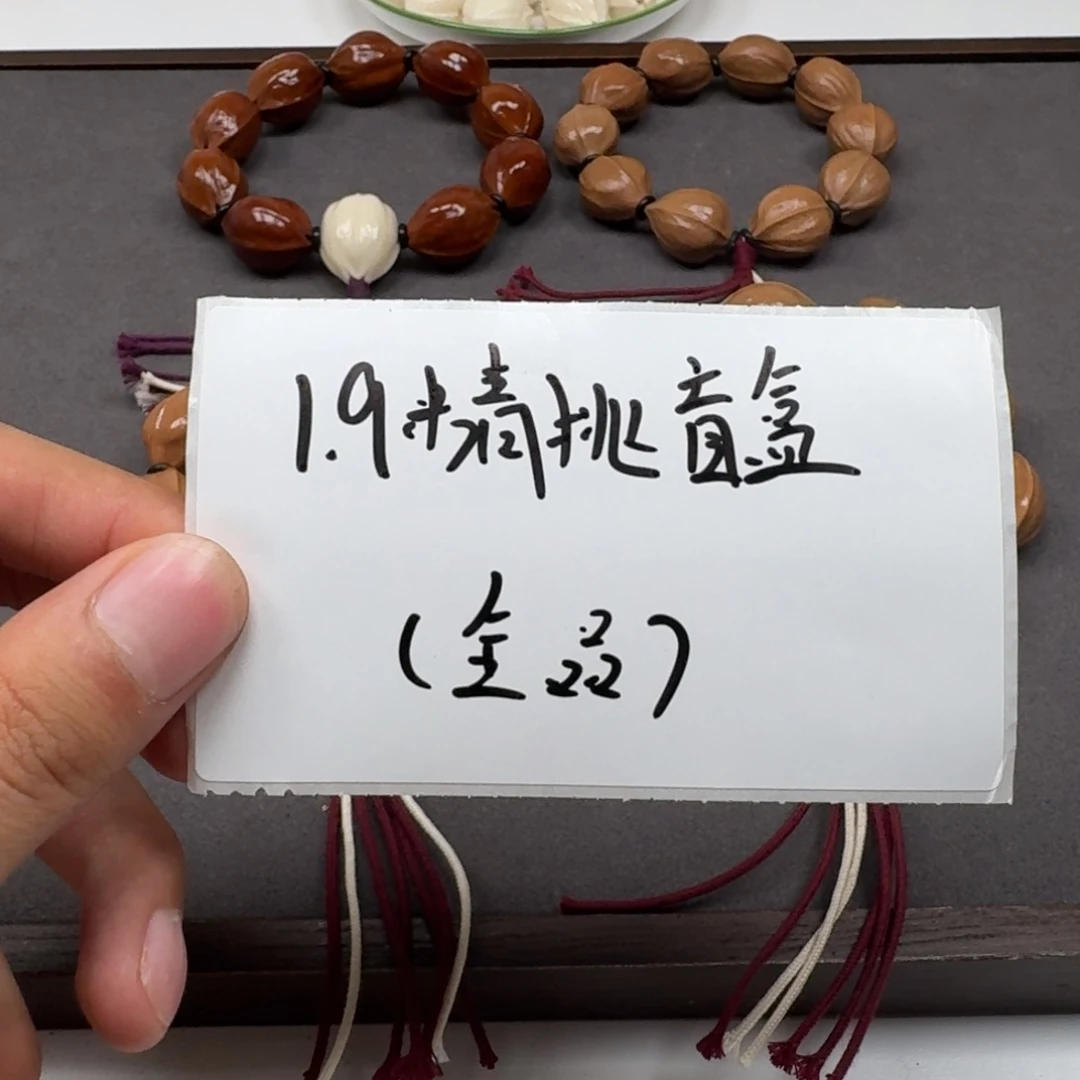 1.9精挑盲盒
(全品)